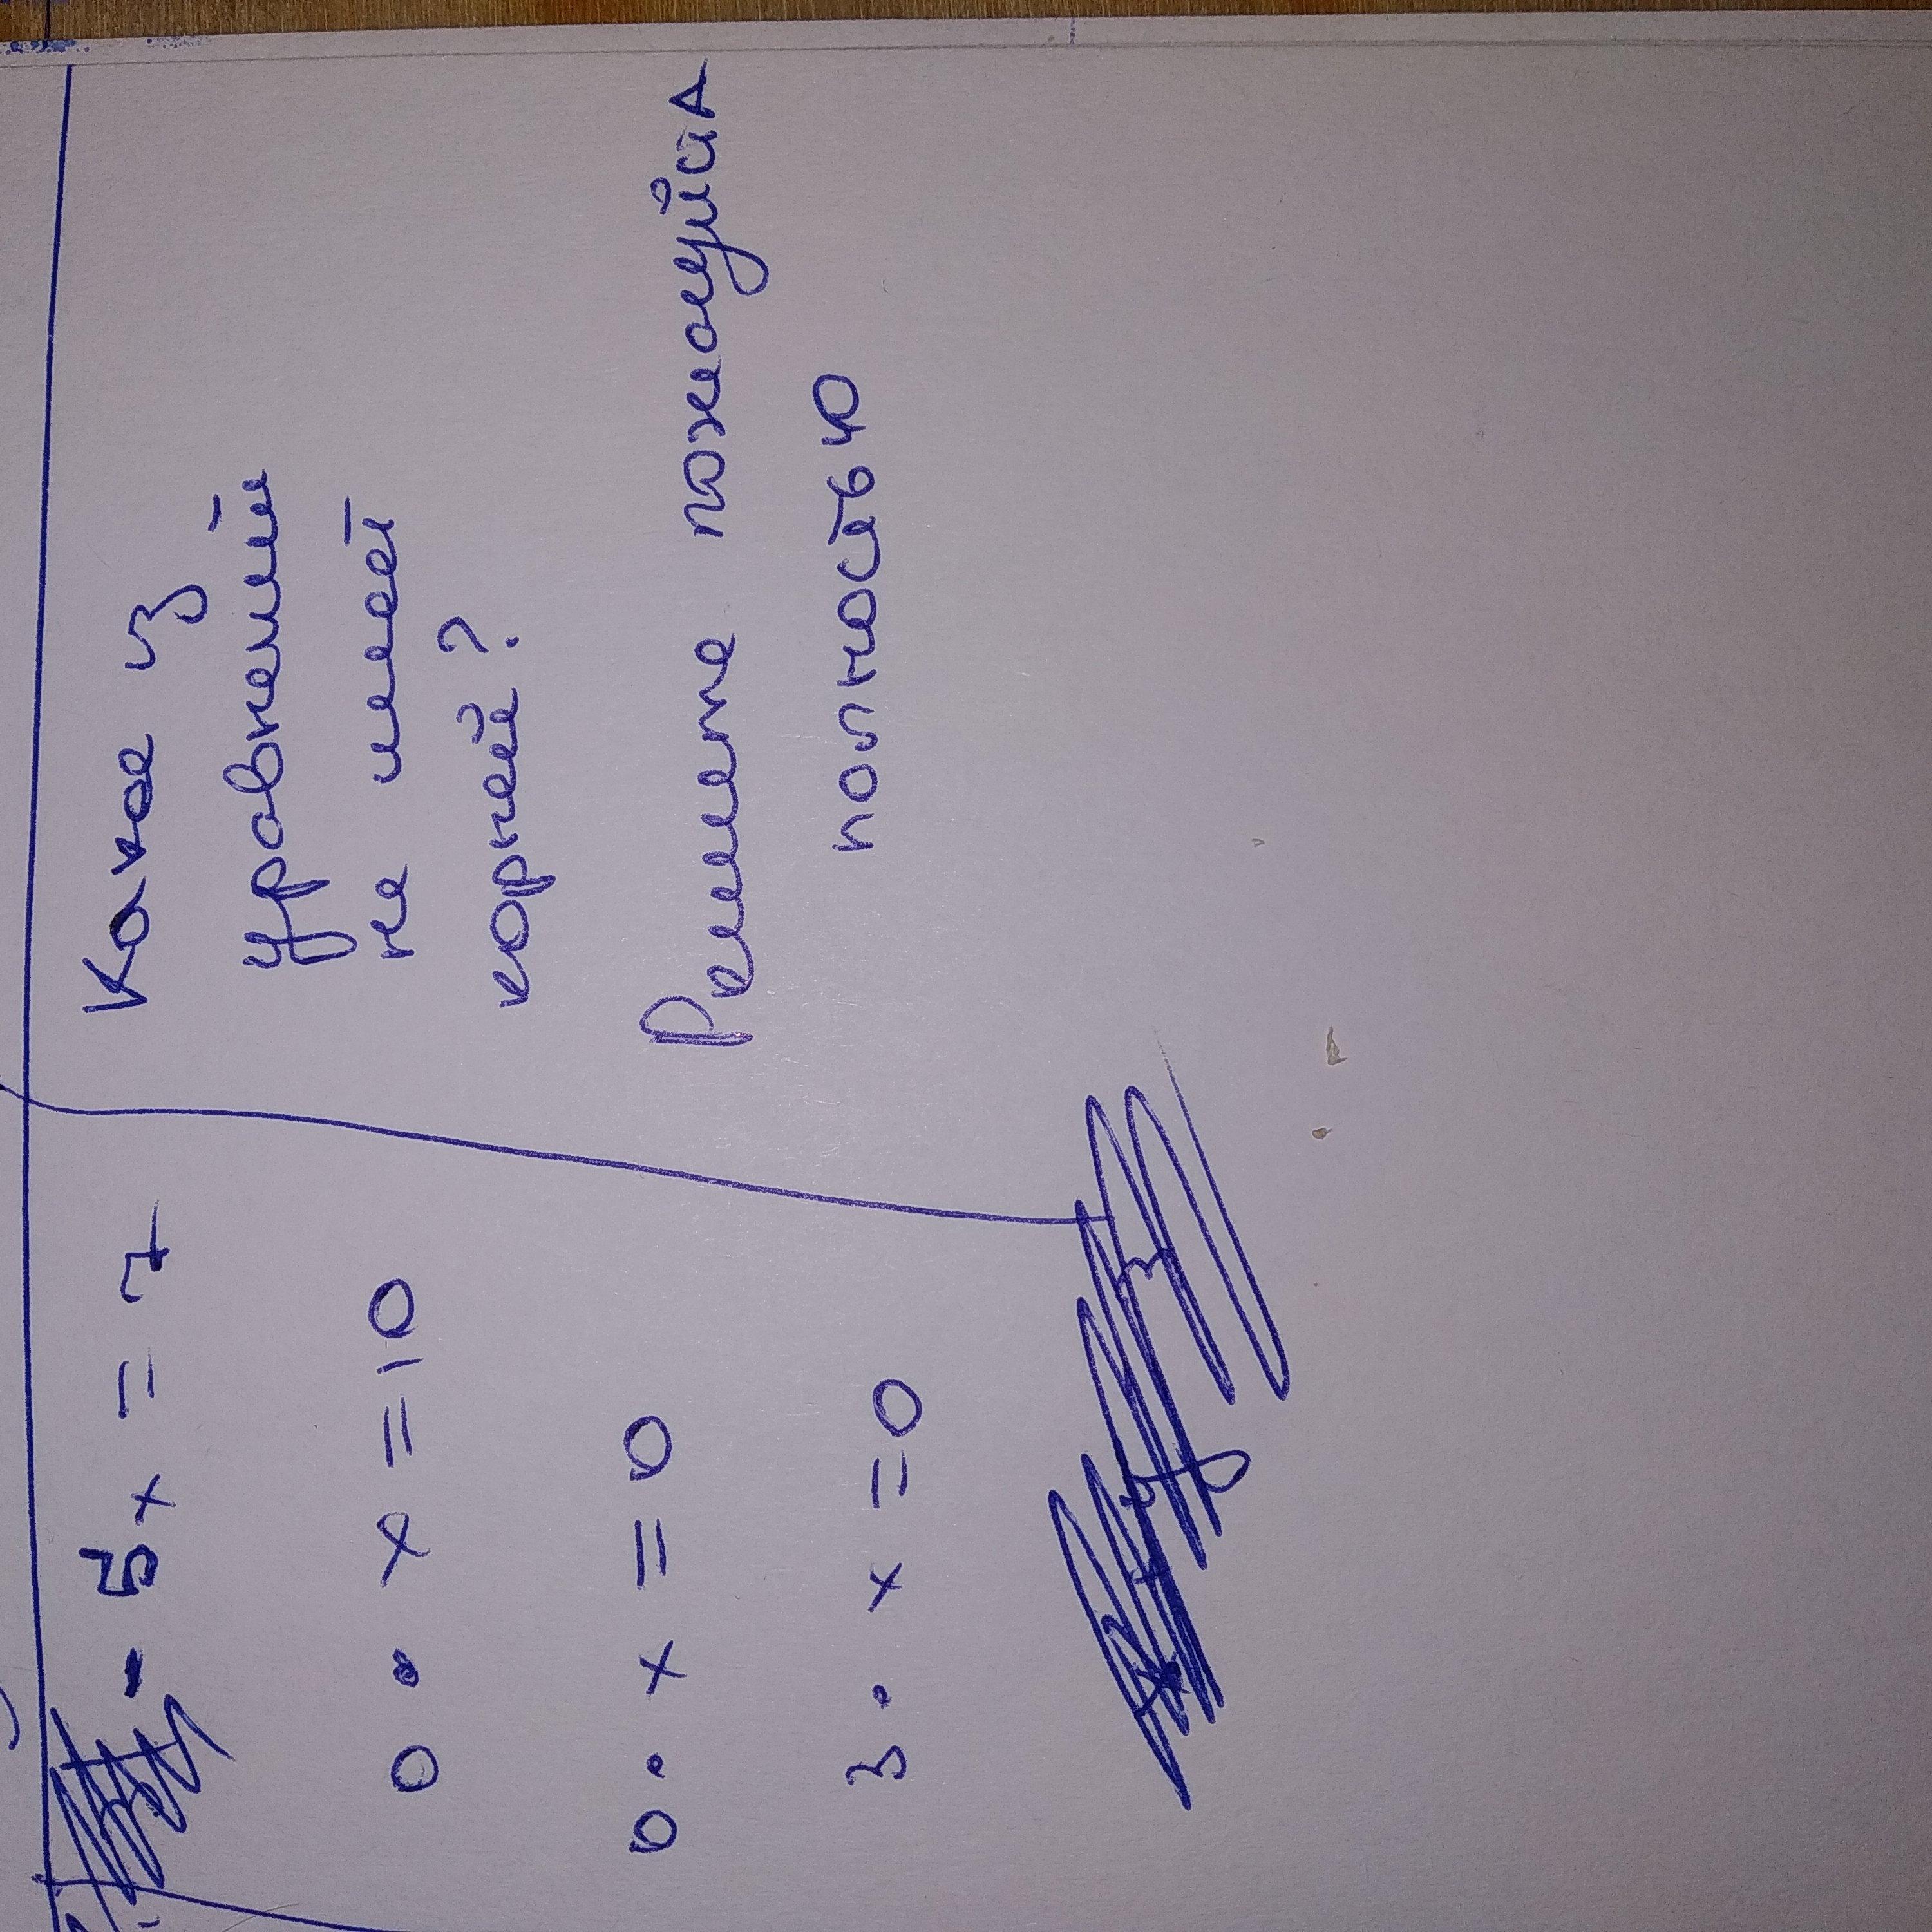 - 5x = 7
0 · x = 10
0 · x = 0
3 · x = 0
Какое из
уравнений
не имеет
корней?
Решите пожалуйста
полностью